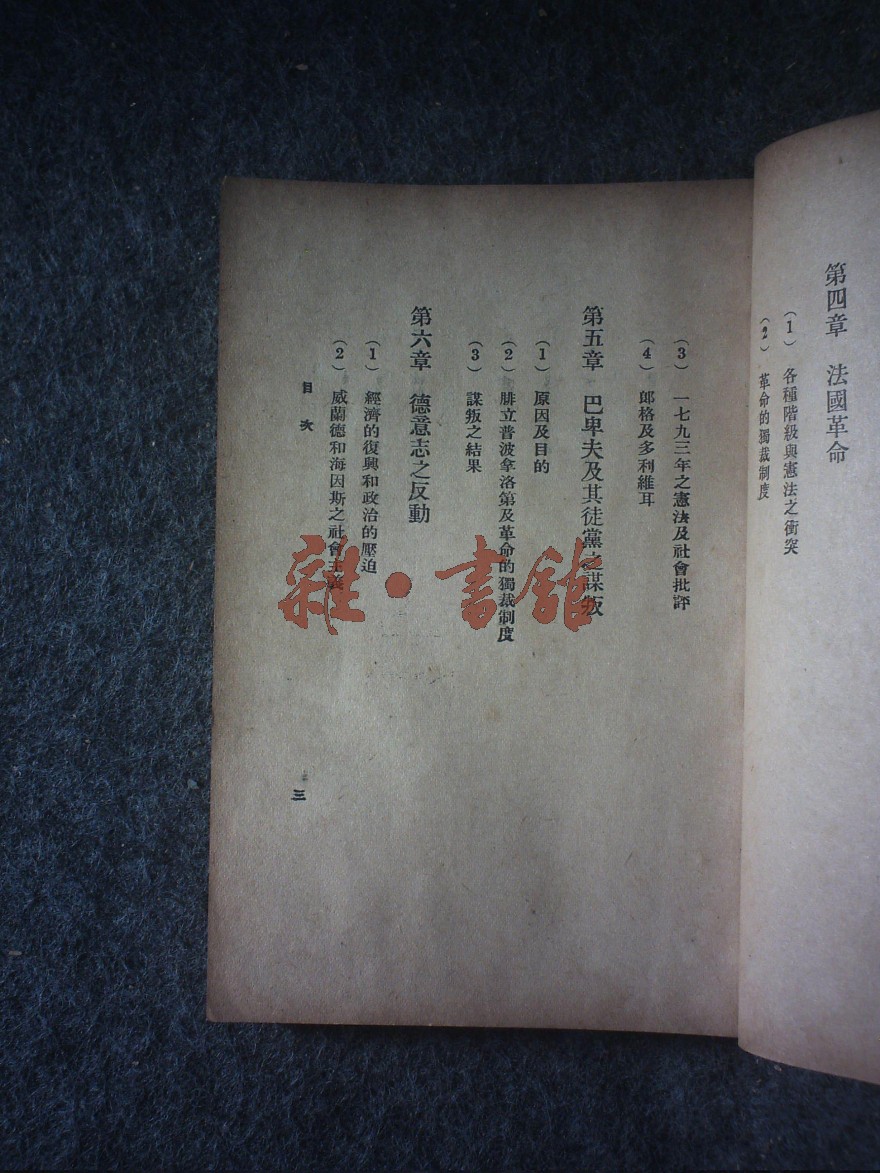 第四章 法國革命
(1) 各種階級與憲法之衝突
(2) 革命的獨裁制度
(3) 一七九三年之憲法及社會批評
(4) 郎格及多利維耳
第五章 巴卑夫及其徒黨之謀叛
(1) 原因及目的
(2) 腓立普波拿洛第及革命的獨裁制度
(3) 謀叛之結果
第六章 德意志之反動
(1) 經濟的復興和政治的壓迫
(2) 威蘭德和海因斯之社會主義
目次
三
雜·書館